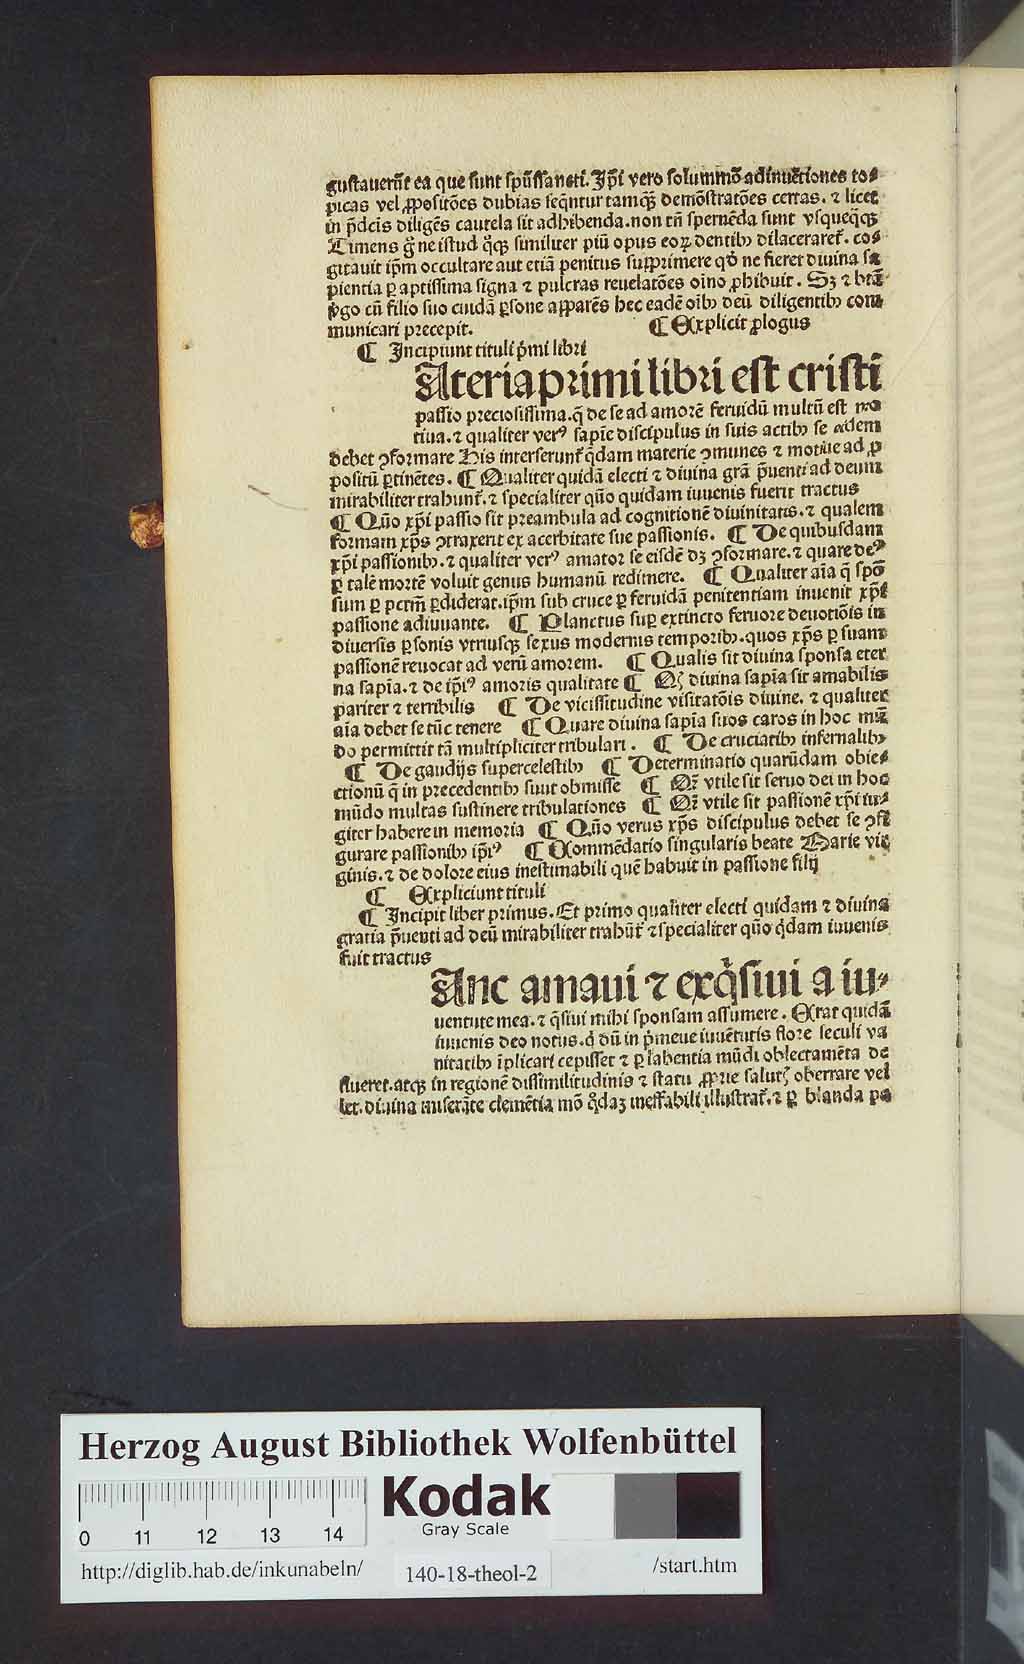 gustauerūt ea que sunt spūssancti. Ip̄i vero solummō adinuētiones to⸗
picas vel ꝓpositōes dubias seq̄ntur tamqȝ demōstratōes certas. ⁊ licet
in p̄dc̄is diligēs cautela sit adhibenda. non tn̄ spernēda sunt vsqueqȝ
Timens gͦ ne istud qͦqȝ similiter piū opus eoꝝ dentibꝯ dilacerareť. co⸗
gitauit ip̄m occultare aut etiā penitus supprimere qͦ ne fieret diuina sa
pientia ꝑ aptissima signa ⁊ pulcras reuelatōes oīno ꝓhibuit. Sȝ ⁊ btā
ꝟgo cū filio suo cuidā ꝑsone apparēs hec eadē oībꝯ deū diligentibꝯ com
municari precepit. ¶ Explicit ꝓlogus
¶ Incipiunt tituli p̄mi libri
Ateria primi libri est cristi
passio preciosissima. q̄ de se ad amorē feruidū multū est mo
tiua. ⁊ qualiter verꝰ sapīe discipulus in suis actibꝯ se eidem
debet ꝯformare His interserunť q̄dam materie ꝯmunes ⁊ motiue ad ꝓ
positū ꝑtinētes. ¶ Qualiter quidā electi ⁊ diuina grā p̄uenti ad deum
mirabiliter trahunť. ⁊ specialiter qūo quidam iuuenis fuerit tractus
¶ Qūo xp̄i passio sit preambula ad cognitionē diuinitatis. ⁊ qualem
formam xp̄s ꝯtraxerit ex acerbitate sue passionis. ¶ De quibusdam
xp̄i passionibꝯ. ⁊ qualiter verꝰ amator se eisdē dȝ ꝯformare. ⁊ quare deꝰ
ꝑ talē mortē voluit genus humanū redimere. ¶ Qualiter aīa q̄ spō
sum ꝑ pctm̄ ꝑdiderat. ip̄m sub cruce ꝑ feruidā penitentiam inuenit xp̄i
passione adiuuante. ¶ Planctus suꝑ extincto feruore deuotiōis in
diuersis ꝑsonis vtriusqȝ sexus modernis temporibꝯ. quos xp̄s ꝑ suam
passionē reuocat ad verū amorem. ¶ Qualis sit diuina sponsa eter
na sapīa. ⁊ de ip̄iꝰ amoris qualitate ¶ Qꝫ diuina sapīa sit amabilis
pariter ⁊ terribilis ¶ De vicissitudine visitatōis diuine. ⁊ qualiter
aīa debet se tūc tenere ¶ Quare diuina sapīa suos caros in hoc mū
do permittit tā multipliciter tribulari. ¶ De cruciatibꝯ infernalibꝯ
¶ De gaudijs supercelestibꝯ ¶ Determinatio quarūdam obie⸗
ctionū q̄ in precedentibꝯ sunt obmisse ¶ Qꝫ vtile sit seruo dei in hoc
mūdo multas sustinere tribulationes ¶ Qꝫ vtile sit passionē xp̄i iu⸗
giter habere in memoria ¶ Qūo verus xp̄s discipulus debet se ꝯfi
gurare passionibꝯ ip̄iꝰ ¶ Commēdatio singularis beate Marie vir
ginis. ⁊ de dolore eius inestimabili quē habuit in passione filij
¶ Expliciunt tituli
¶ Incipit liber primus. Et primo qualiter electi quidam ⁊ diuina
gratia p̄uenti ad deū mirabiliter trahūť ⁊ specialiter qūo q̄dam iuuenis
fuit tractus
Anc amaui ⁊ exq̇siui a iu⸗
uentute mea. ⁊ q̄siui mihi sponsam assumere. Erat quidā
iuuenis deo notus. q̄ dū in p̄meue iuuētutis flore seculi va
nitatibꝯ īplicari cepisset ⁊ ꝑ labentia mūdi oblectamēta de
flueret. atqȝ in regionē dissimilitudinis ⁊ statu ꝓprie salutꝭ oberrare vel
let. diuina miserāte clemētia mō qͦdaȝ ineffabili illustrať. ⁊ ꝑ blanda pa
Herzog August Bibliothek Wolfenbüttel
Kodak
Gray Scale
0 11 12 13 14
http://diglib.hab.de/inkunabeln/ 140-18-theol-2 /start.htm